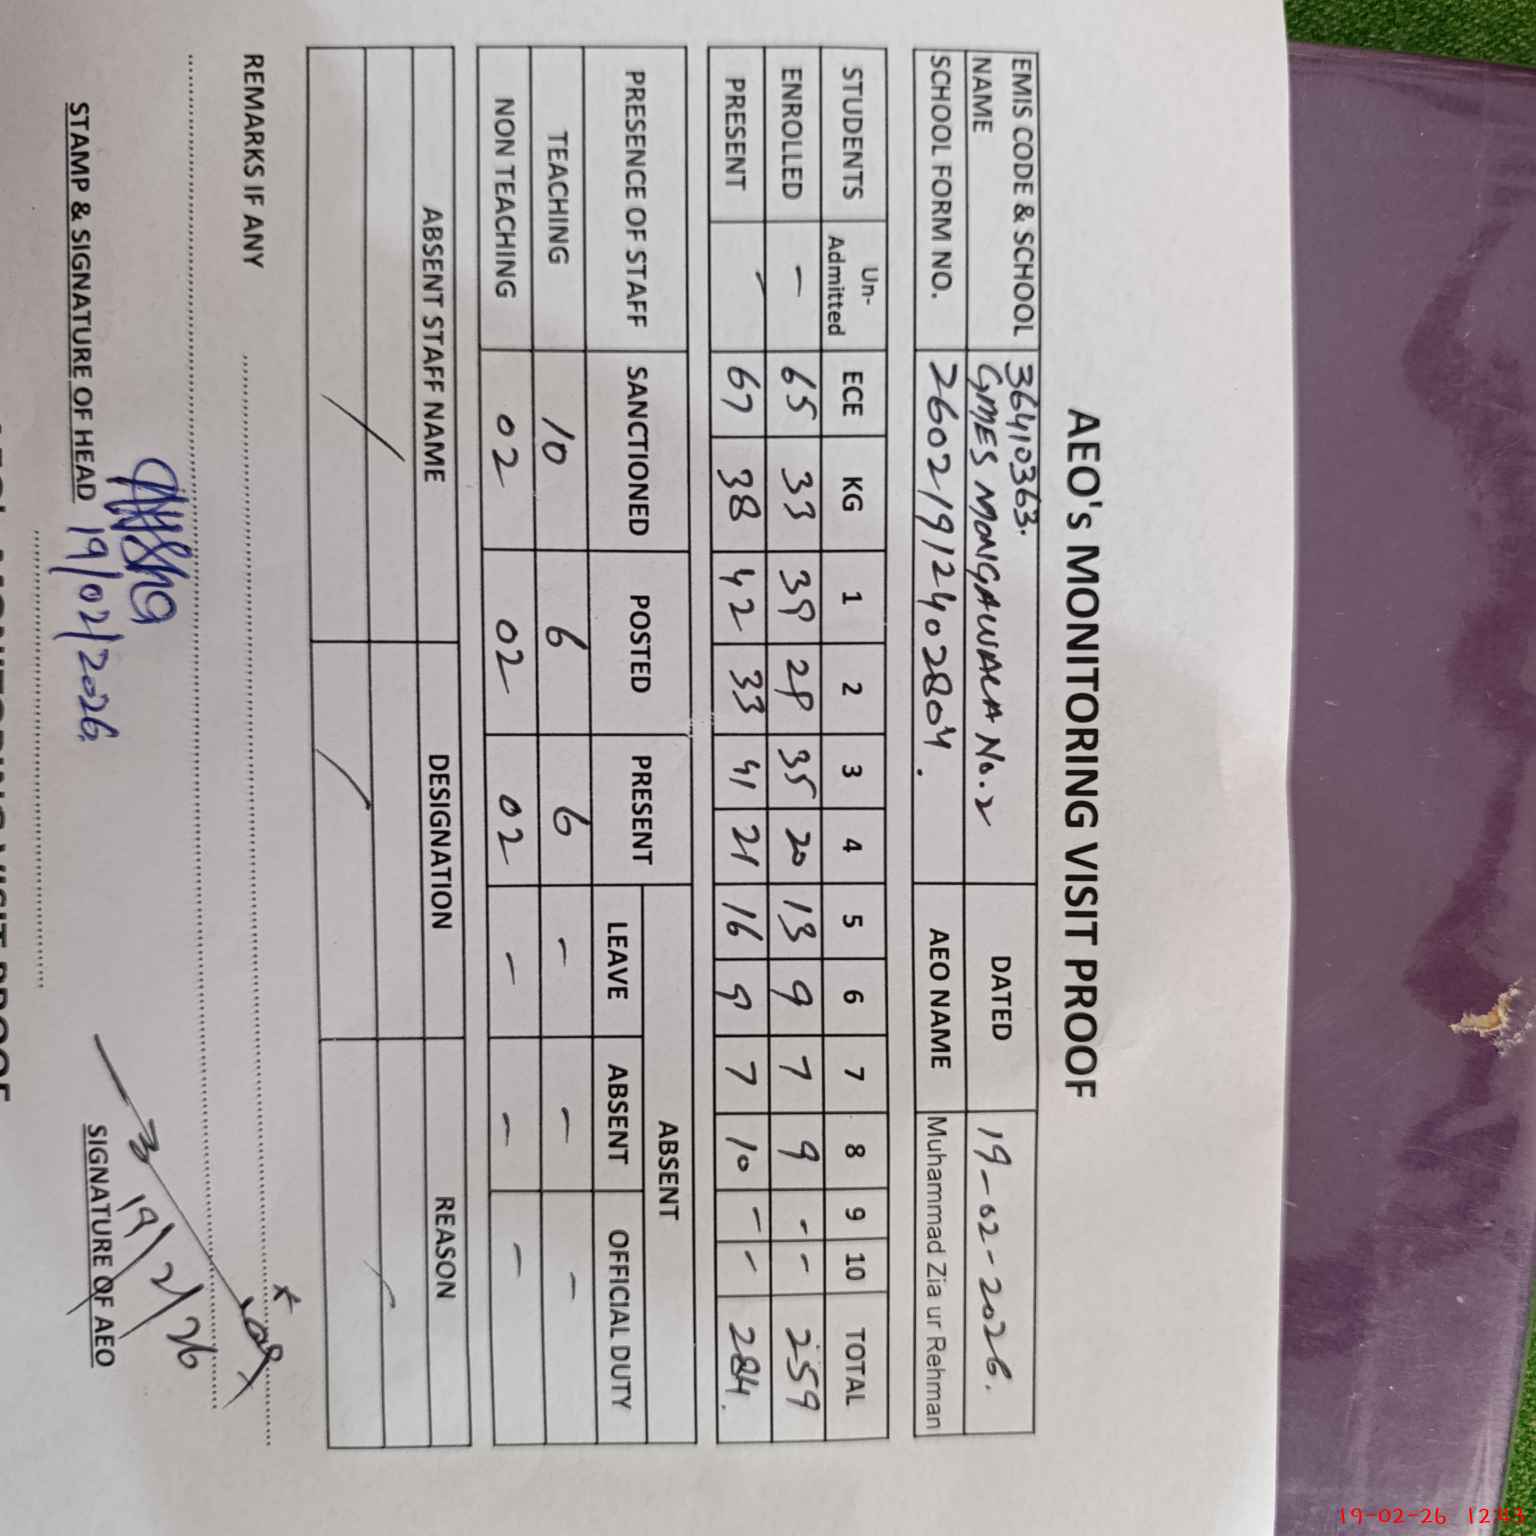 AEO's MONITORING VISIT PROOF
EMIS CODE & SCHOOL NAME 36410363. GMES MONGAWALA No. 2 DATED 19-02-2026.
SCHOOL FORM NO. 26021912402804. AEO NAME Muhammad Zia ur Rehman
STUDENTS Un-Admitted ECE KG 1 2 3 4 5 6 7 8 9 10 TOTAL
ENROLLED - 65 33 39 29 35 20 13 9 7 9 - - 259
PRESENT - 67 38 42 33 41 21 16 9 7 10 - - 284.
PRESENCE OF STAFF SANCTIONED POSTED PRESENT ABSENT
LEAVE ABSENT OFFICIAL DUTY
TEACHING 10 6 6 - - -
NON TEACHING 02 02 02 - - -
ABSENT STAFF NAME DESIGNATION REASON
REMARKS IF ANY
19/2/26
STAMP & SIGNATURE OF HEAD 19/02/2026. SIGNATURE OF AEO
19-02-26 12:43